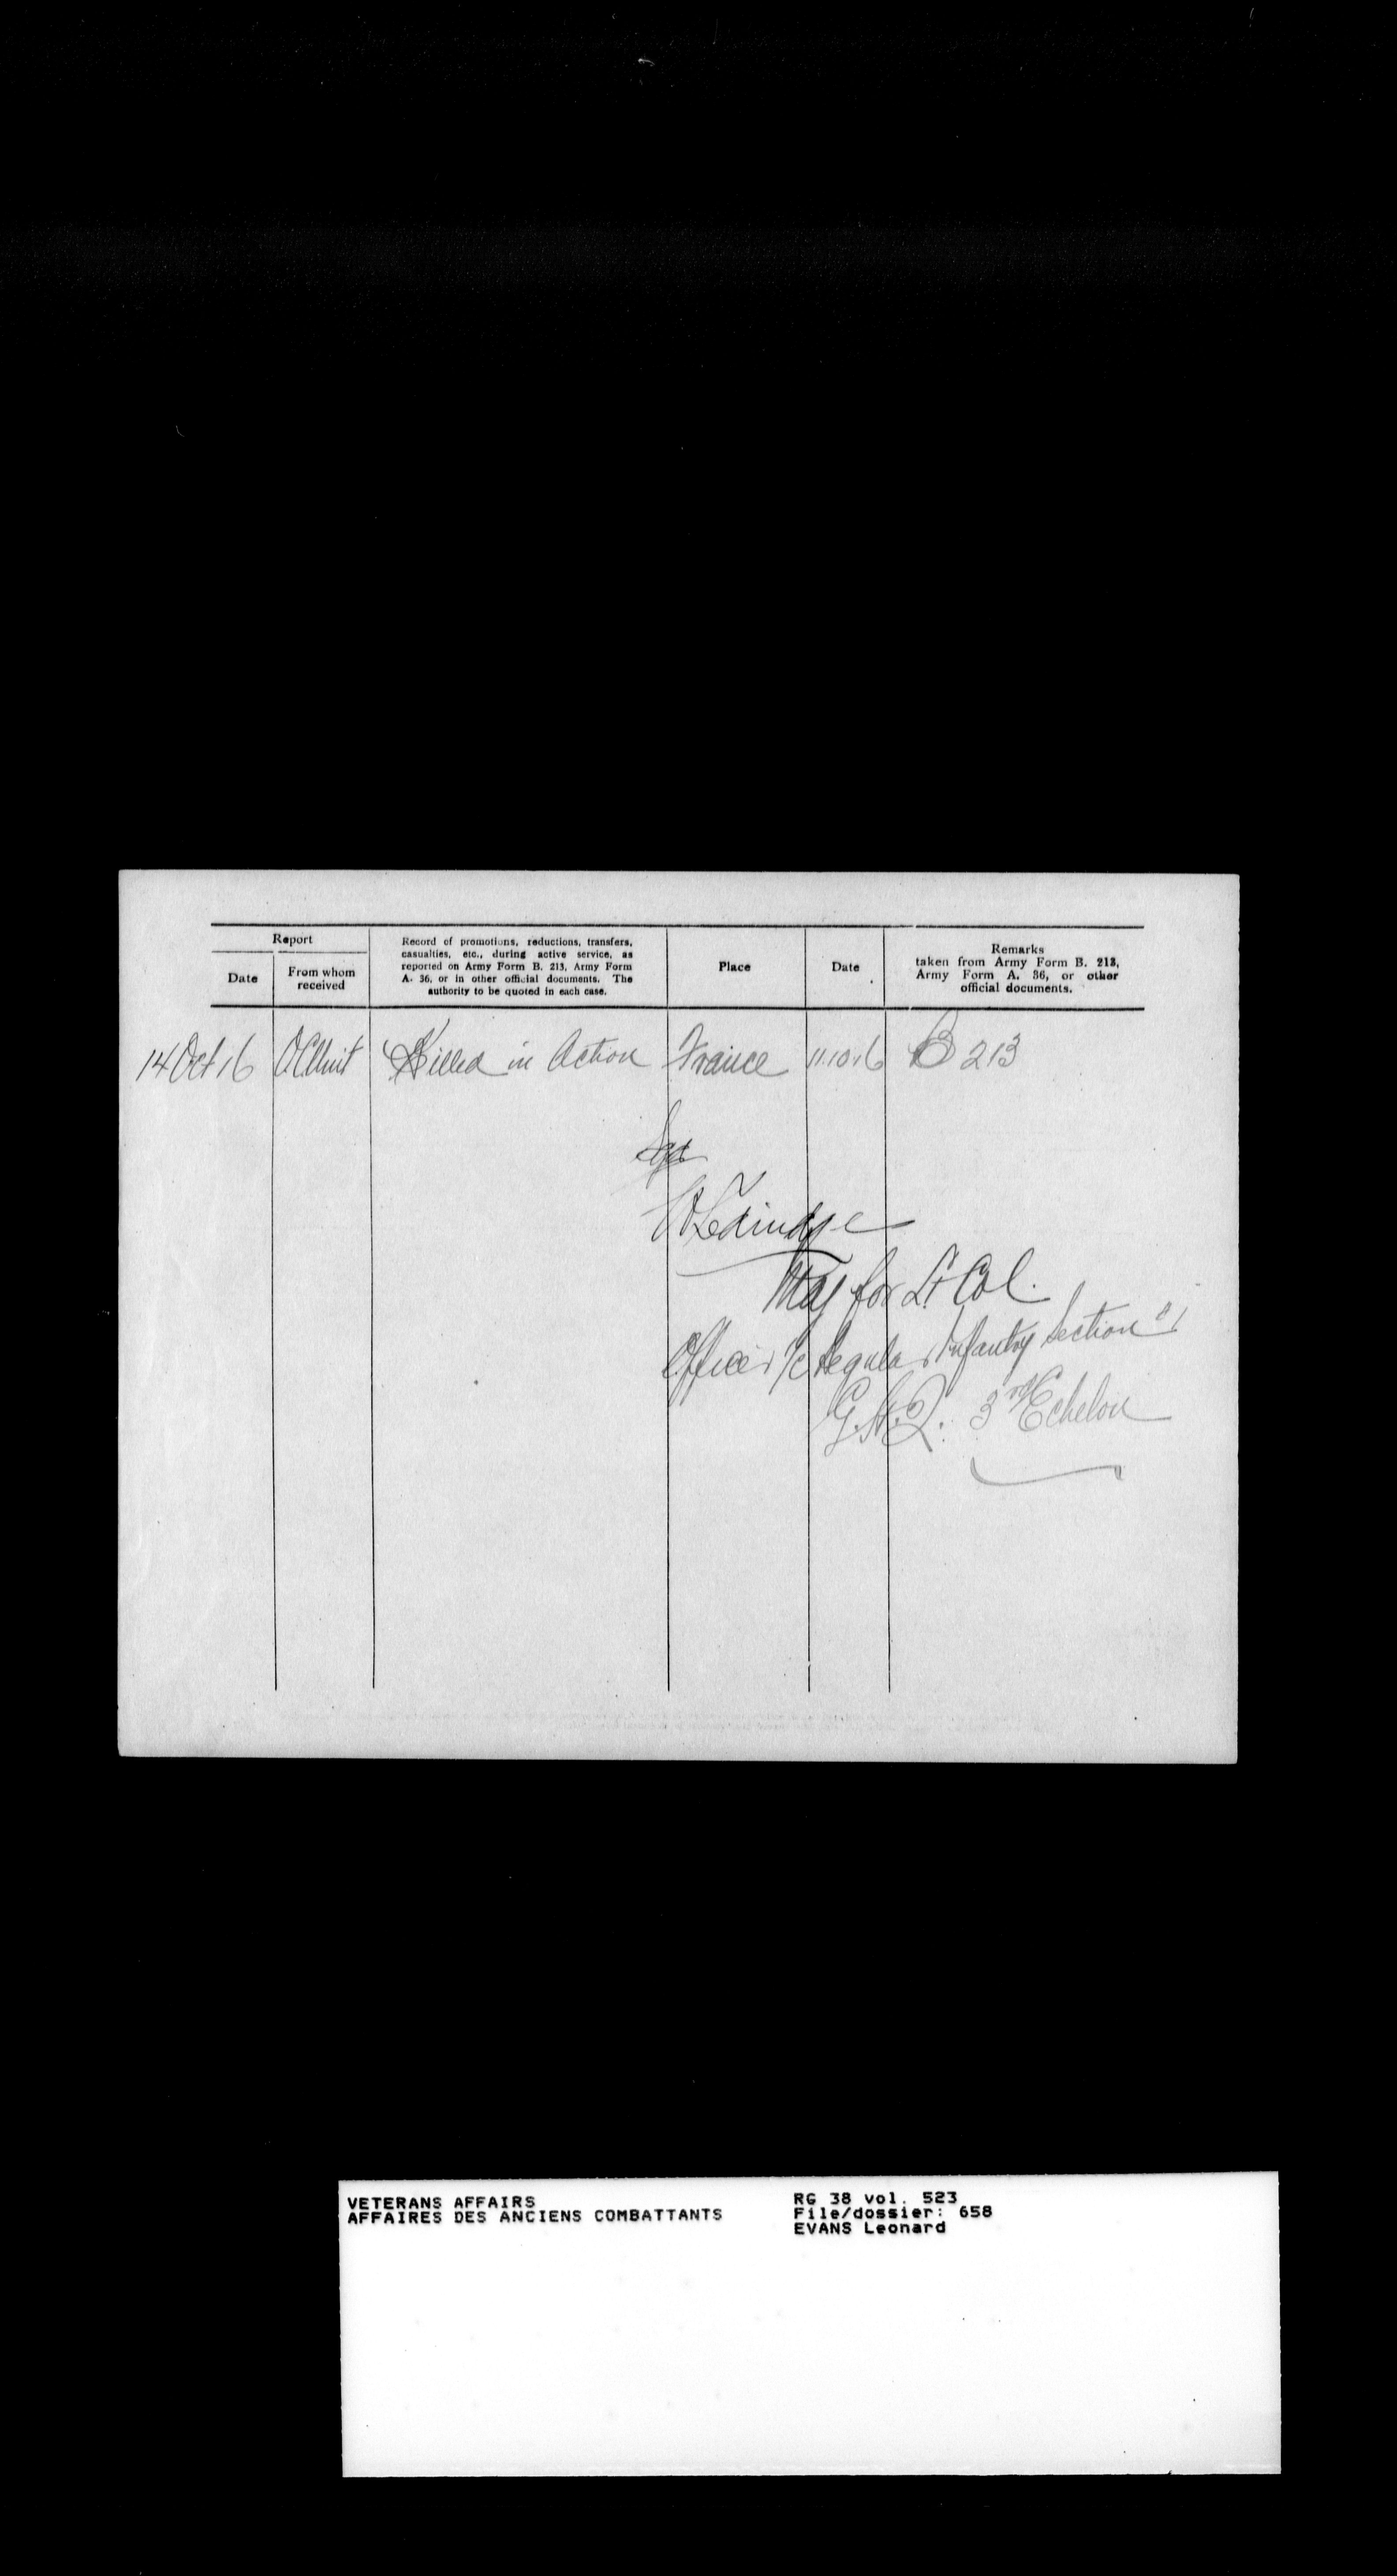 Report
Date
From whom
received
Record of promotions, reductions, transfers,
casualties, etc., during active service, as
reported on Army Form B. 213, Army Form
A. 36, or in other official documents. The
authority to be quoted in each case.
Place
Date
Remarks
taken from Army Form B. 213,
Army Form A. 36, or other
official documents.
14 Oct 16 OC Unit Killed in Action France 11.10.16 B 213
Sgd
Maj for Lt Col.
Officer i/c Regular Infantry Section
G.H.Q. 3rd Echelon
VETERANS AFFAIRS
AFFAIRES DES ANCIENS COMBATTANTS
RG 38 vol. 523
File/dossier: 658
EVANS Leonard